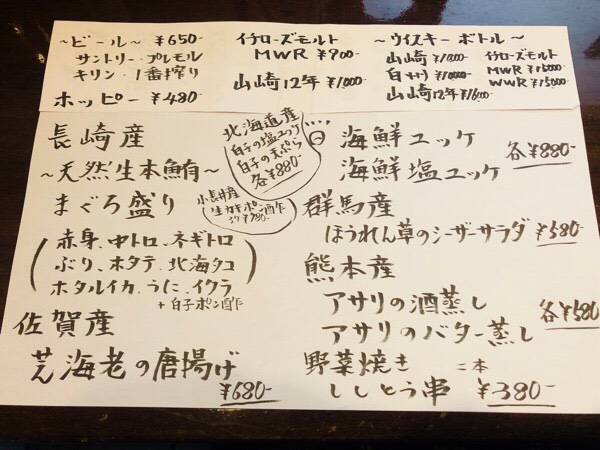 ～ビール～ ¥650-
サントリー・プレモル
キリン・1番搾り
ホッピー ¥480-
イチローズモルト
MWR ¥900-
山崎12年 ¥1,000-
～ウイスキーボトル～
山崎 ¥11,000-
白サン ¥11,000-
山崎12年 ¥16,000-
イチローズモルト
MWR ¥15,000-
WWR ¥15,000-
長崎産
～天然生本鮪～
まぐろ盛り
赤身、中トロ、ネギトロ
ぶり、ホタテ、北海タコ
ホタルイカ、うに、イクラ
+白子ポン酢
佐賀産
芝海老の唐揚げ
¥680-
北海道産
白子の塩ユッケ
白子の天ぷら
各¥880-
小長井産
生カキポン酢
¥780-
海鮮ユッケ
海鮮塩ユッケ
各¥880-
群馬産
ほうれん草のシーザーサラダ ¥580-
熊本産
アサリの酒蒸し
アサリのバター蒸し
各¥580
野菜焼き 二本
ししとう串 ¥380-